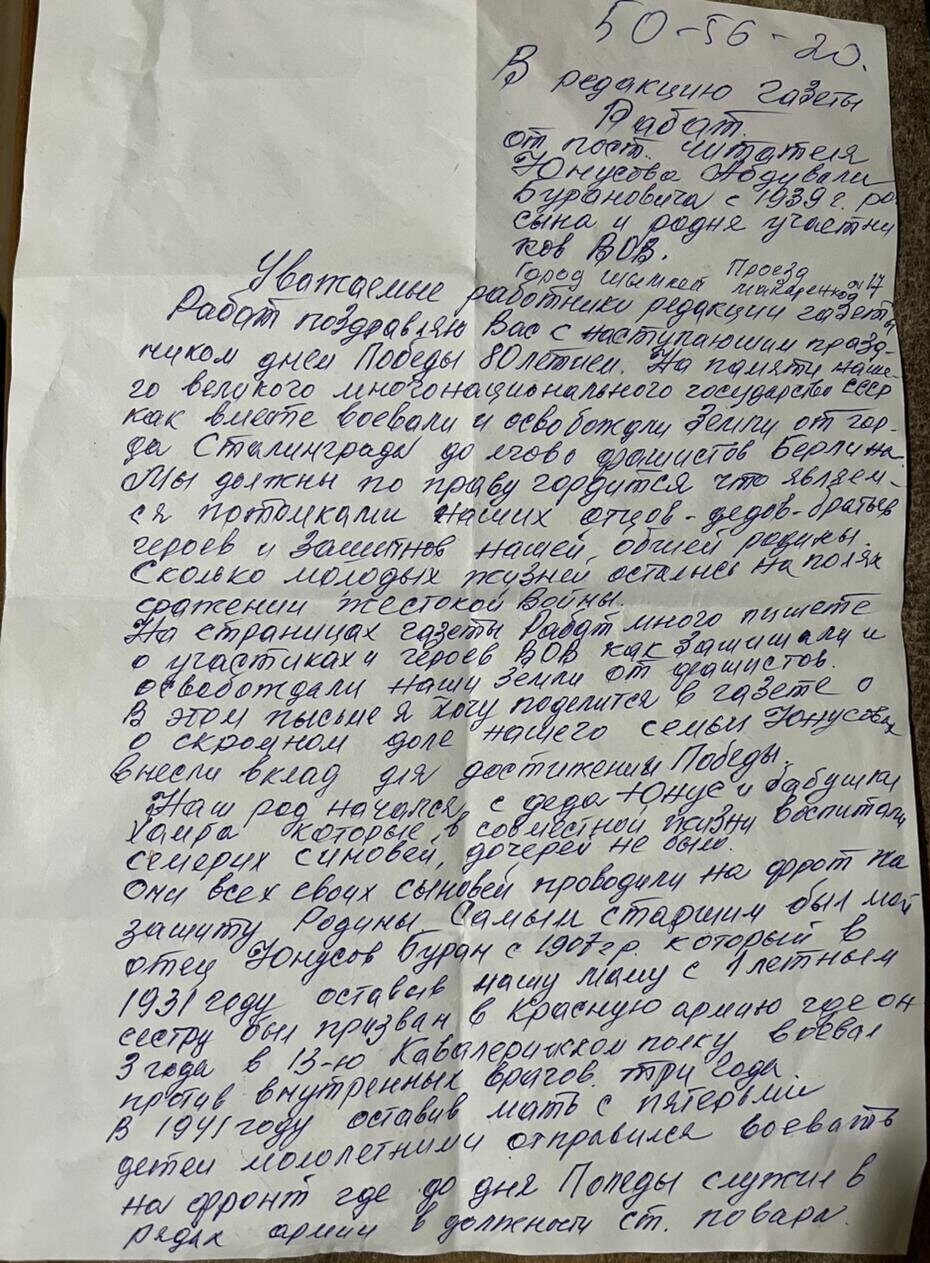 50-56-20.
В редакцию газеты
Рабат.
от пост. читателя
Юнусова Абдували
Бурановича с 1939 г. ро
сына и родня участни
ков ВОВ.
Город Шымкент Проезд
Макаренко №17
Уважаемые работники редакции газеты
Рабат поздравляю Вас с наступаюшим празд-
ником днем Победы 80летием. На памяти наше-
го великого многонационального государство СССР
как вместе воевали и освобождали Земли от гор-
да Сталинграда до логово фашистов Берлина.
Мы должны по праву гордится что являем-
ся потомками наших отцов-дедов-братьев
героев и Зашитнов нашей, обшей родины.
Сколько молодых жизней остались на полях
сражении жестокой войны.
На страницах газеты Рабат много пишете
о участиках и героев ВОВ как Зашишали и
освобождали наши Земли от фашистов.
В этом письме я хочу поделится в газете о
о скромном доле нашего семьи Юнусовых
внесли вклад для достижении Победы.
Наш род начался с деда Юнус и бабушки
Хамра которые в совместной жизни воспитали
семерих синовей, дочерей не было.
Они всех своих сыновей проводили на фронт на
зашиту Родины. Самым старшим был мой
отец Юнусов Буран с 1907 г р. который в
1931 году оставив нашу маму с 1 летным
сестру был призван в Красную армию где он
3 года в 13-ю Кавалерийском полку воевал
против внутренных врагов. три года.
В 1941 году оставив мать с пятерыми
детей молопетними отправился воевать
на фронт где до дня Победы служил в
рядах армии в должности ст. повара.